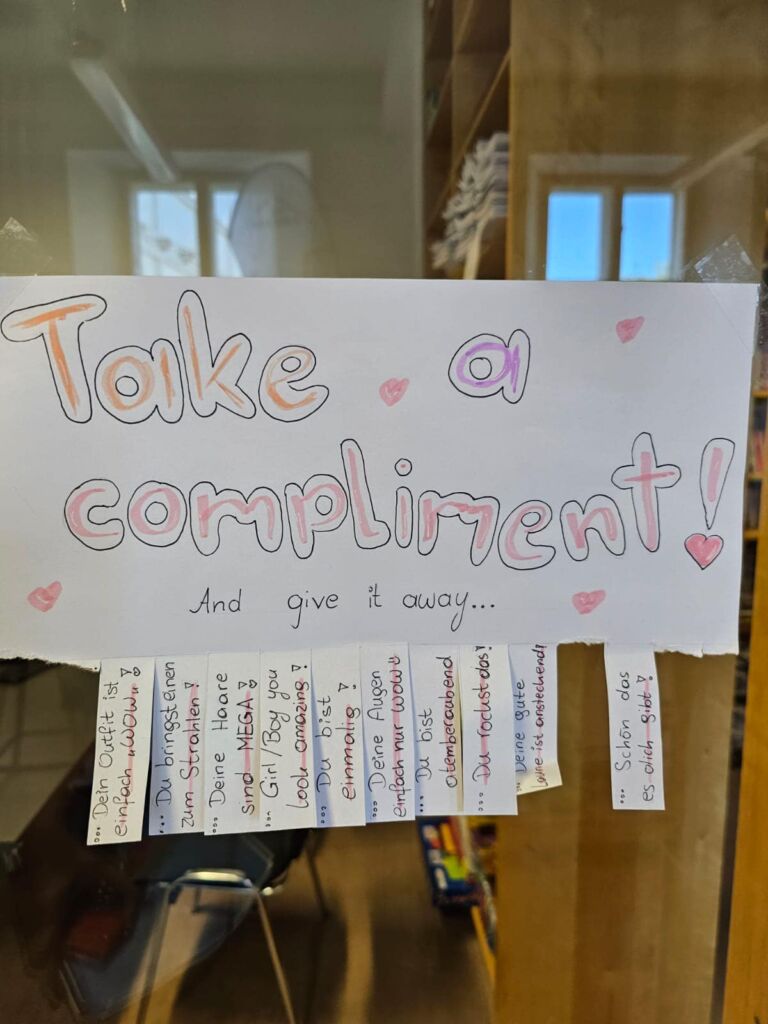 Take a
compliment!
And give it away...
... Dein Outfit ist
einfach "WOW"!
... Du bringst einen
zum Strahlen!
... Deine Haare
sind MEGA!
... Girl/Boy you
look amazing!
... Du bist
einmalig!
... Deine Augen
einfach nur WOW!!
... Du bist
atemberaubend
... Du rockst das!
... Deine gute
Laune ist ansteckend!
... Schön das
es dich gibt!